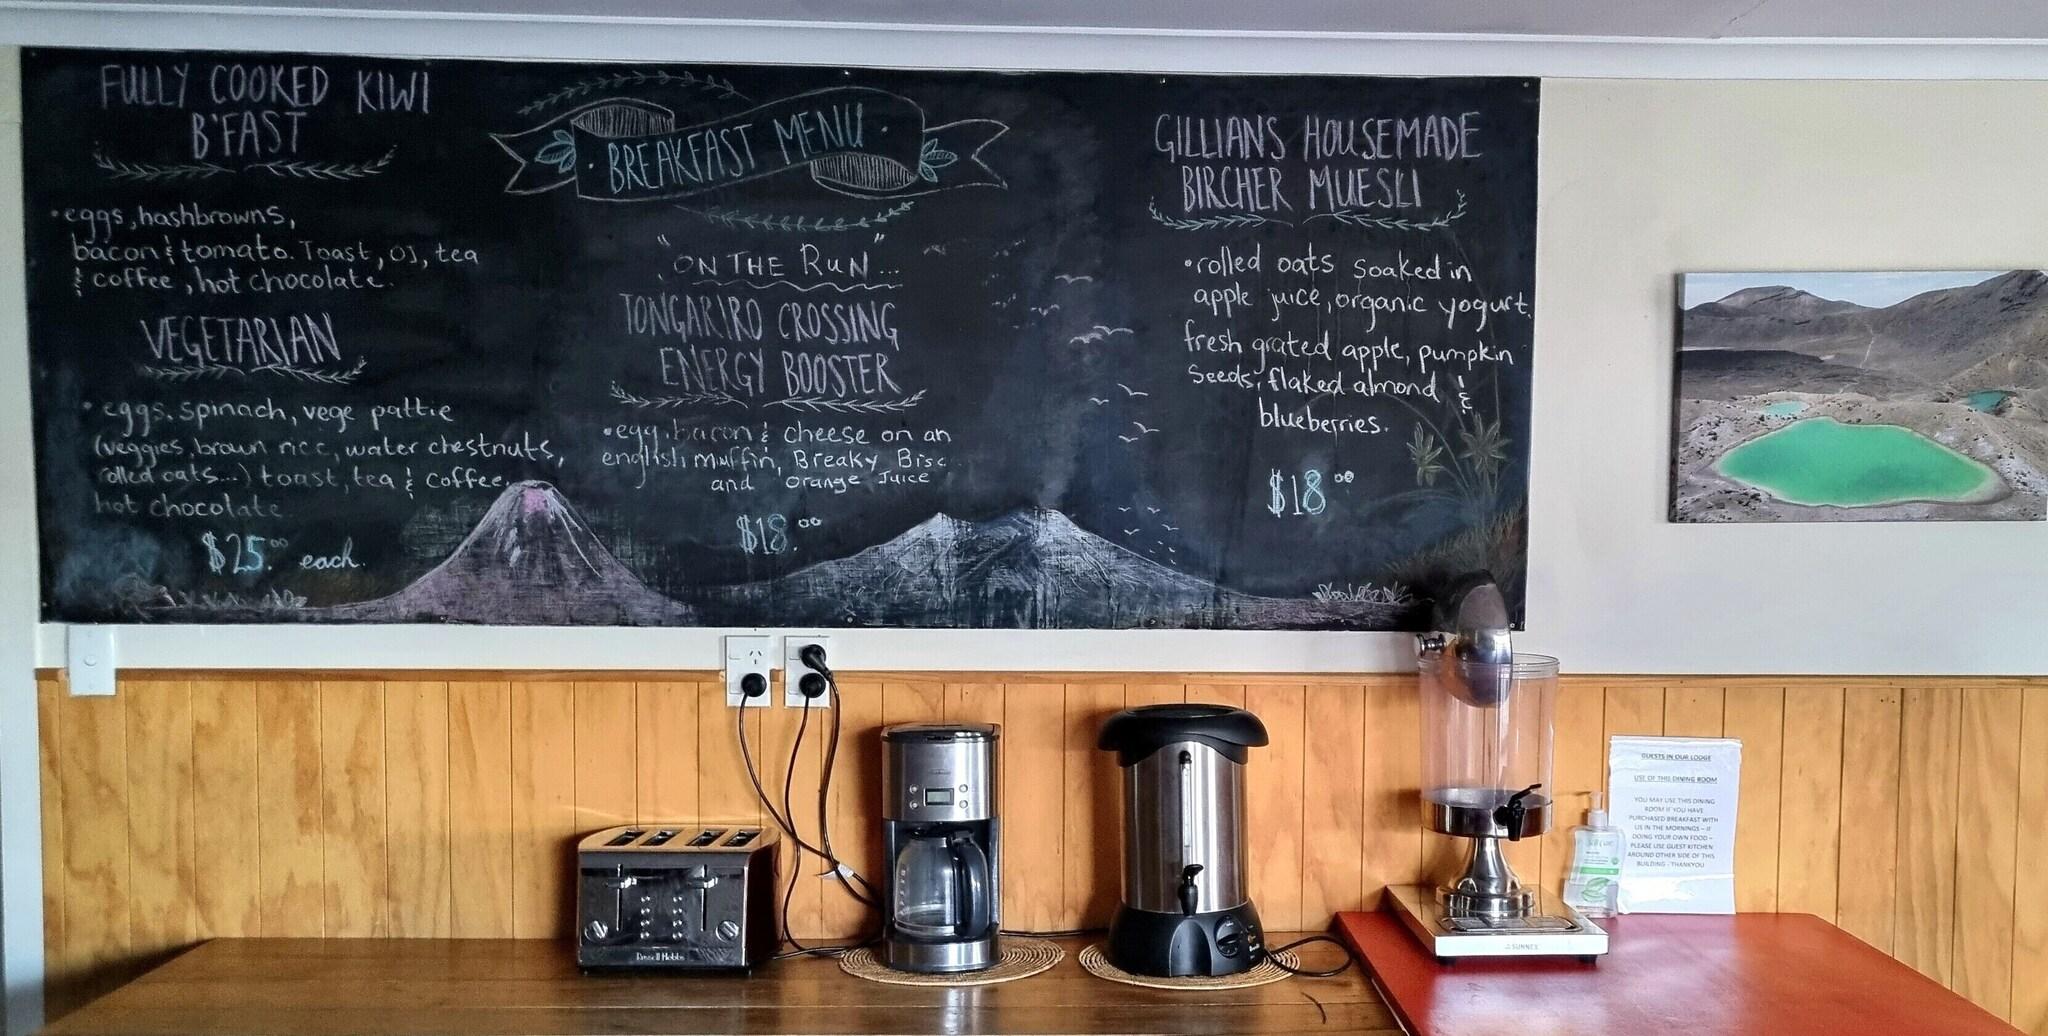 FULLY COOKED KIWI
B'FAST
• eggs, hashbrowns,
bacon & tomato. Toast, OJ, tea
& coffee, hot chocolate.
VEGETARIAN
• eggs. spinach, vege pattie
(veggies, brown rice, water chestnuts,
rolled oats...) toast, tea & coffee,
hot chocolate
$25.00 each.
BREAKFAST MENU
"ON THE RUN"...
TONGARIRO CROSSING
ENERGY BOOSTER
• egg, bacon & cheese on an
english muffin, Breaky Bisc
and orange Juice
$18.00
GILLIANS HOUSEMADE
BIRCHER MUESLI
• rolled oats soaked in
apple juice, organic yogurt,
fresh grated apple, pumpkin
seeds, flaked almond &
blueberries.
$18.00
Russell Hobbs
SUNNEX
GUESTS IN OUR LODGE
USE OF THIS DINING ROOM
YOU MAY USE THIS DINING
ROOM IF YOU HAVE
PURCHASED BREAKFAST WITH
US IN THE MORNINGS – IF
DOING YOUR OWN FOOD –
PLEASE USE GUEST KITCHEN
AROUND OTHER SIDE OF THIS
BUILDING - THANKYOU